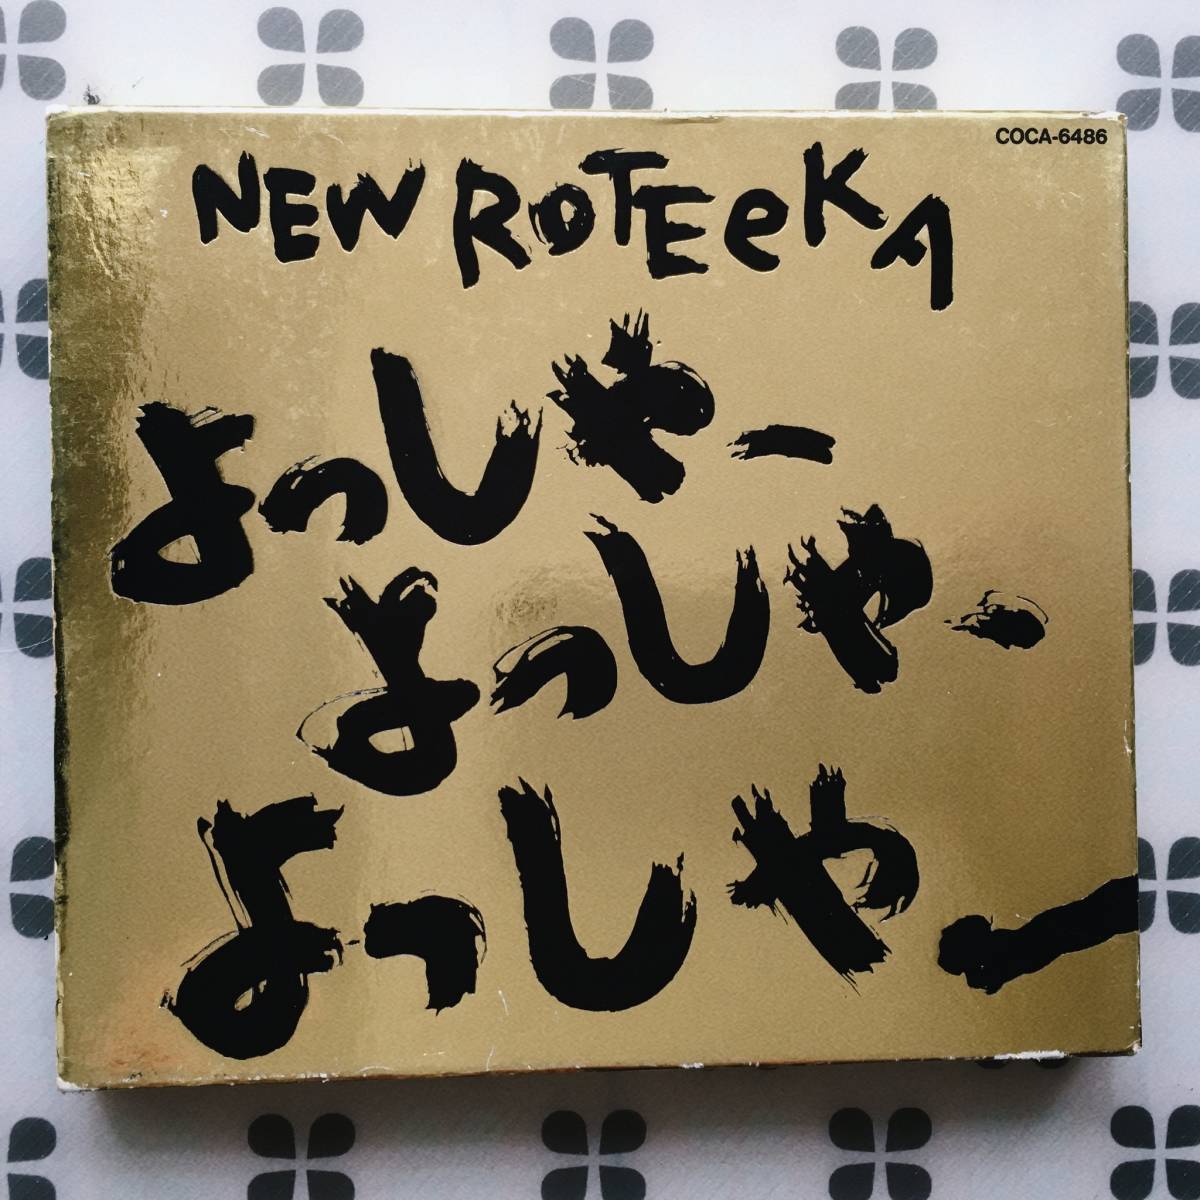 COCA-6486
NEW ROTEeKA
よっしゃー
よっしゃー
よっしゃー